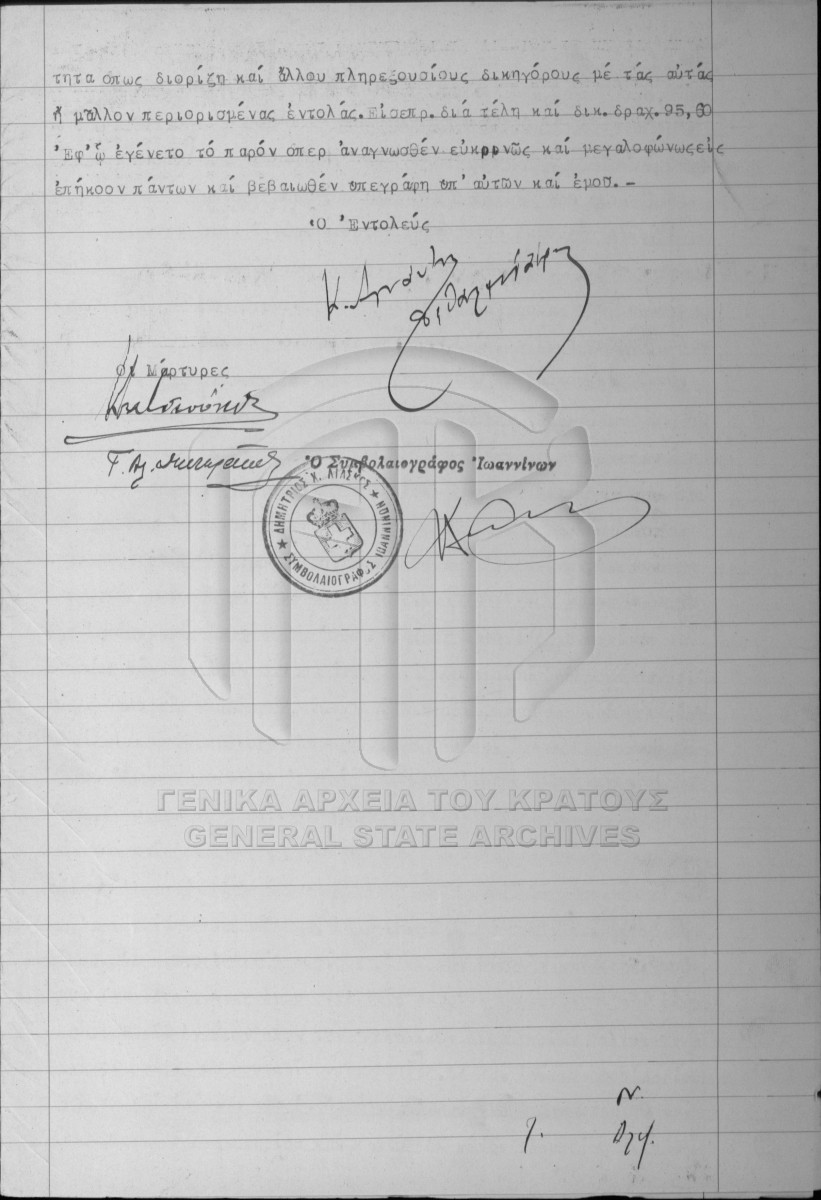 τητα οπως διορίζη καί ἄλλου πληρεξουσίους δικηγόρους μέ τάς αὐτάς
ἤ μᾶλλον περιορισμένας ἐντολάς. Εἰσεπρ. διά τέλη καί δικ. δραχ. 95,60
Ἐφ' ᾧ ἐγένετο τό παρόν οπερ ἀναγνωσθέν εὐκρρνῶς καί μεγαλοφώνωςεἰς
ἐπήκοον πάντων καί βεβαιωθέν υπεγράφη υπ' αὐτῶν καί ἐμοσ.-
Ὁ Ἐντολεύς
Οἱ Μάρτυρες
Ὁ Συμβολαιογράφος Ἰωαννίνων
ΔΗΜΗΤΡΙΟΣ Κ.
ΣΥΜΒΟΛΑΙΟΓΡΑΦΟΣ ΙΩΑΝΝΙΝΩΝ
ΓΕΝΙΚΑ ΑΡΧΕΙΑ ΤΟΥ ΚΡΑΤΟΥΣ
GENERAL STATE ARCHIVES